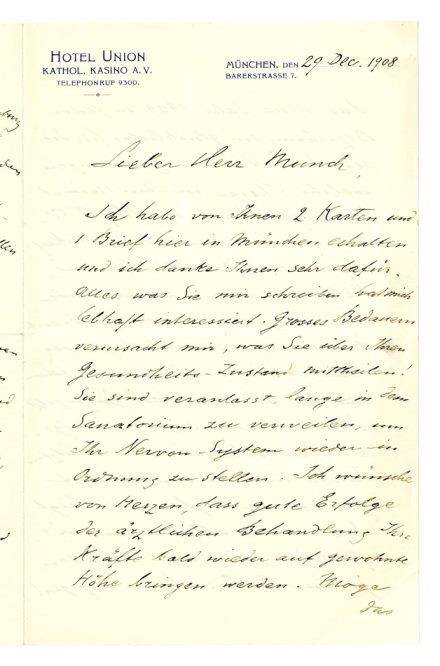 HOTEL UNION
KATHOL. KASINO A.V.
TELEPHONRUF 9300.
MÜNCHEN, DEN 29 Dec. 1908
BARERSTRASSE 7.
Lieber Herr Munch,
Ich habe von Ihnen 2 Karten und
1 Brief hier in München erhalten
und ich danke Ihnen sehr dafür.
Alles was Sie mir schreiben hat mich
lebhaft interessiert. Grosses Bedauern
verursacht mir, was Sie über Ihren
Gesundheits-Zustand mittheilen!
Sie sind veranlasst, lange in dem
Sanatorium zu verweilen, um
Ihr Nerven-System wieder in
Ordnung zu stellen. Ich wünsche
von Herzen, dass gute Erfolge
der ärztlichen Behandlung Ihre
Kräfte bald wieder auf gewohnte
Höhe bringen werden. Möge
das